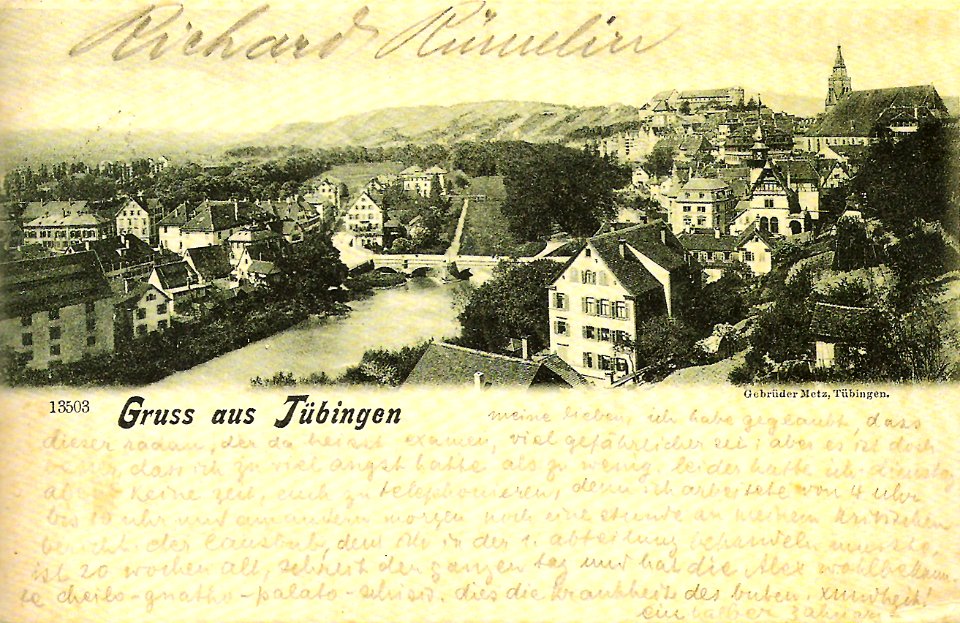 Richard Rümelin
Gebrüder Metz, Tübingen.
13503 Gruss aus Tübingen
meine lieben, ich habe geglaubt, dass
dieser radau, der da heisst examen, viel gefährlicher sei; aber es ist doch
dass ich zu viel angst hatte als zu wenig. leider hatte ich dienstag
abend keine zeit, euch zu telephonieren, denn ich arbeitete von 4 uhr
bis 10 uhr und am andern morgen noch eine stunde an meinem kritischen
bericht. der den ich in der 1. abteilung behandeln musste,
ist 20 wochen alt, schreit den ganzen tag und hat die wohlbekann
te cheilo-gnatho-palato-schisis. dies die krankheit des buben.
ein